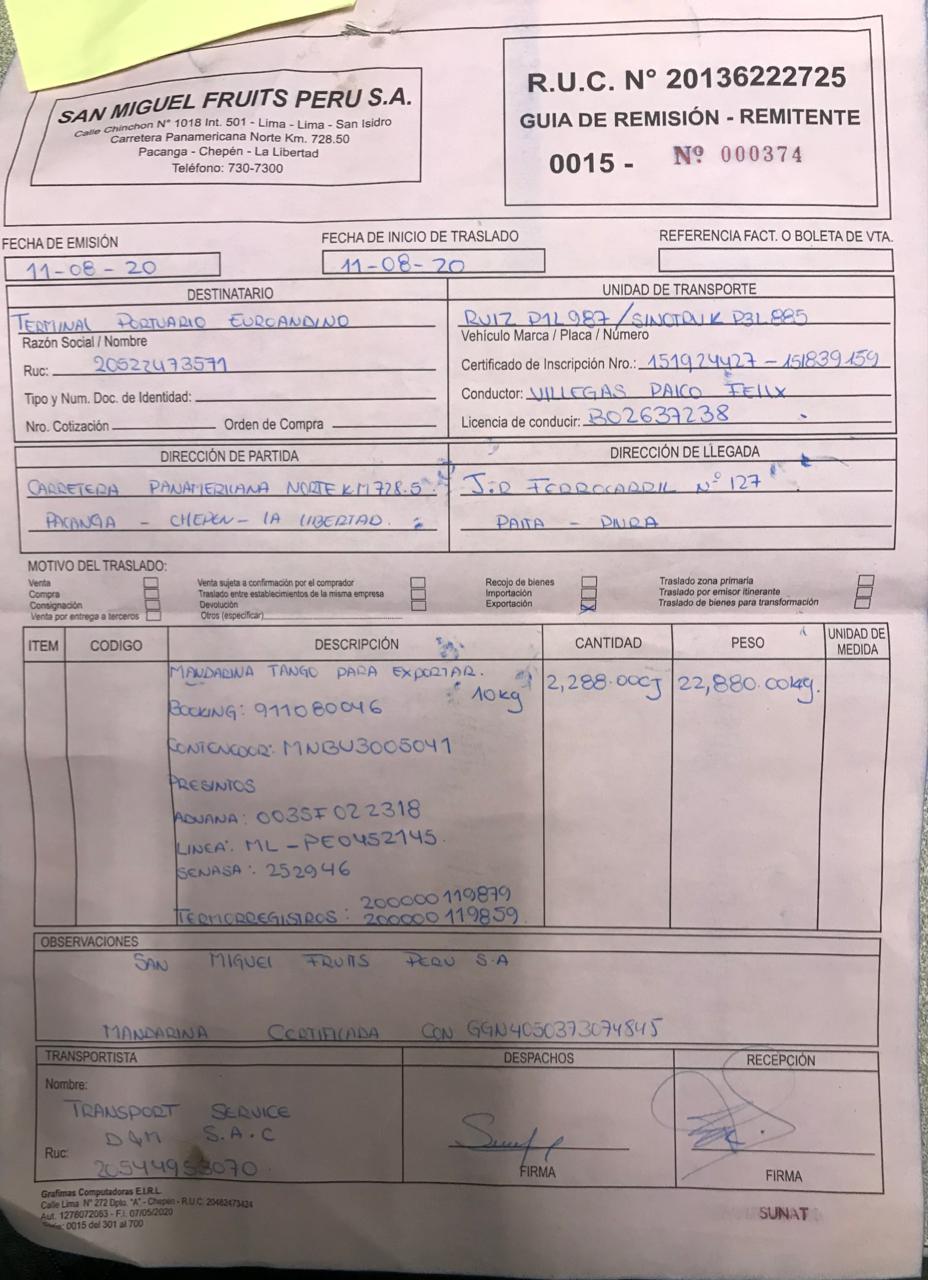 SAN MIGUEL FRUITS PERU S.A.
Calle Chinchon N° 1018 Int. 501 - Lima - Lima - San Isidro
Carretera Panamericana Norte Km. 728.50
Pacanga - Chepén - La Libertad
Teléfono: 730-7300
R.U.C. N° 20136222725
GUIA DE REMISIÓN - REMITENTE
0015 - Nº 000374
FECHA DE EMISIÓN
11-08-20
FECHA DE INICIO DE TRASLADO
11-08-20
REFERENCIA FACT. O BOLETA DE VTA.
DESTINATARIO
TERMINAL PORTUARIO EUROANDINO
Razón Social / Nombre
Ruc: 20522473571
Tipo y Num. Doc. de Identidad:
Nro. Cotización Orden de Compra
UNIDAD DE TRANSPORTE
RUIZ P1L987 / SINOTRUK P3L885
Vehículo Marca / Placa / Número
Certificado de Inscripción Nro.: 151924427 - 151839159
Conductor: VILLEGAS PAICO FELIX
Licencia de conducir: B02637238
DIRECCIÓN DE PARTIDA
CARRETERA PANAMERICANA NORTE KM 728.5
PACANGA - CHEPEN - LA LIBERTAD.
DIRECCIÓN DE LLEGADA
JIR FERROCARRIL Nº 127
PAITA - PIURA
MOTIVO DEL TRASLADO:
Venta
Compra
Consignación
Venta por entrega a terceros
Venta sujeta a confirmación por el comprador
Traslado entre establecimientos de la misma empresa
Devolución
Otros (especificar)
Recojo de bienes
Importación
Exportación X
Traslado zona primaria
Traslado por emisor itinerante
Traslado de bienes para transformación
ITEM CODIGO DESCRIPCIÓN CANTIDAD PESO UNIDAD DE MEDIDA
MANDARINA TANGO PARA EXPORTAR. 2,288.00CJ 22,880.00kg.
10kg
BOOKING: 911080046
CONTENEDOR: MNBU3005041
PRESINTOS
ADUANA: 003SF022318
LINEA: ML-PE0452145.
SENASA: 252946
200000119879
TERMORREGISTROS: 200000119859
OBSERVACIONES
SAN MIGUEL FRUITS PERU S.A
MANDARINA CERTIFICADA CON GGN4050373074845
TRANSPORTISTA
Nombre:
TRANSPORT SERVICE
D&M S.A.C
Ruc:
20544953070
DESPACHOS
FIRMA
RECEPCIÓN
FIRMA
Grafimas Computadoras E.I.R.L.
Calle Lima N° 272 Dpto. "A" - Chepén - R.U.C. 20482473424
Aut. 1276072063 - F.I. 07/05/2020
Serie: 0015 del 301 al 700
SUNAT